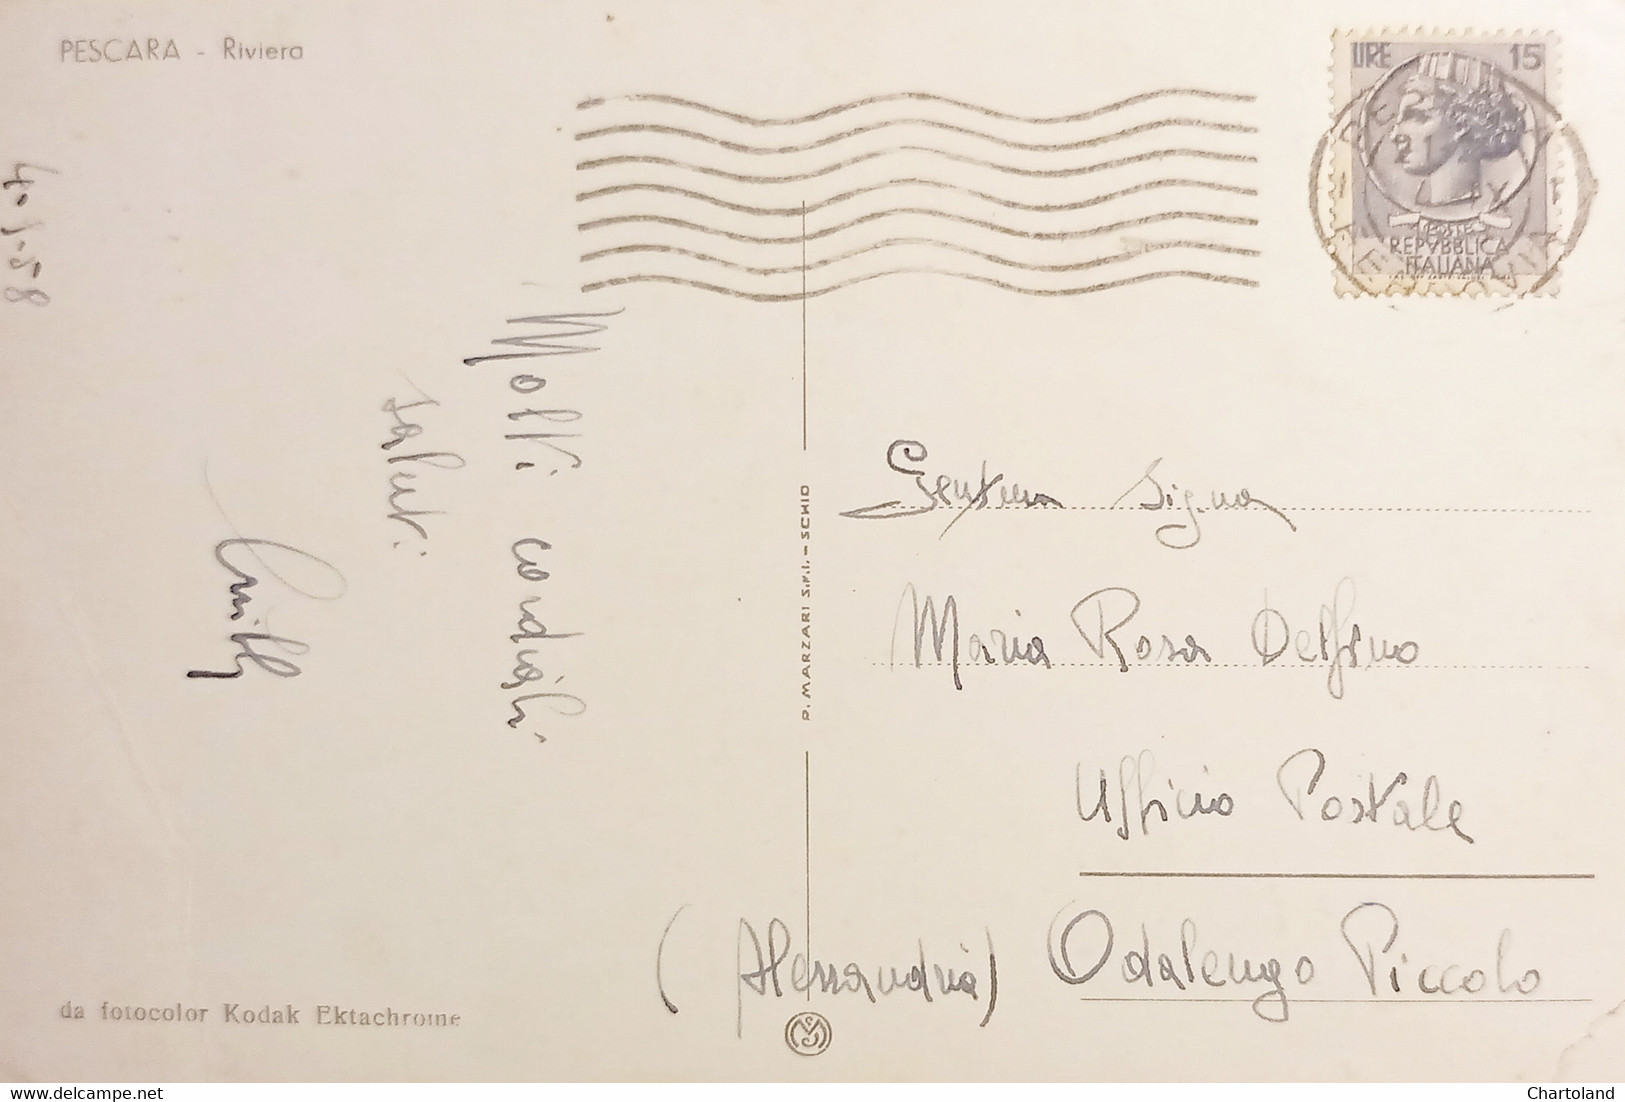 PESCARA - Riviera
LIRE 15
POSTE
REPVBBLICA
ITALIANA
4-9-58
Molti cordiali
saluti
P. MARZARI S.R.L. - SCHIO
Gent.ma Sig.na
Maria Rosa Delfino
Ufficio Postale
(Alessandria) Odalengo Piccolo
da fotocolor Kodak Ektachrome
www.delcampe.net
Chartoland